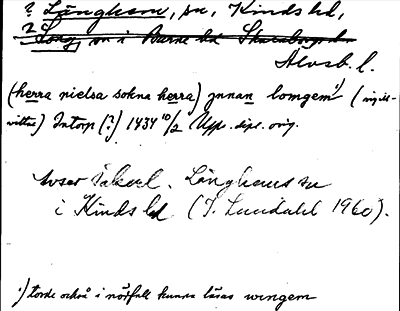 ? Långhem, sn, Kinds hd,
? Long, sn i Barne hd Skaraborgs län
Älvsb. l.
(herra nielsa sokna herra) ȷnnan lomgem 1) (
vittne) Intorp (?) 1434 10/2 Upps. dipl. orig.
Avser säkerl. Långhems sn
i Kinds hd (J. Lundahl 1960).
1) torde också i nödfall kunna läsas wngem